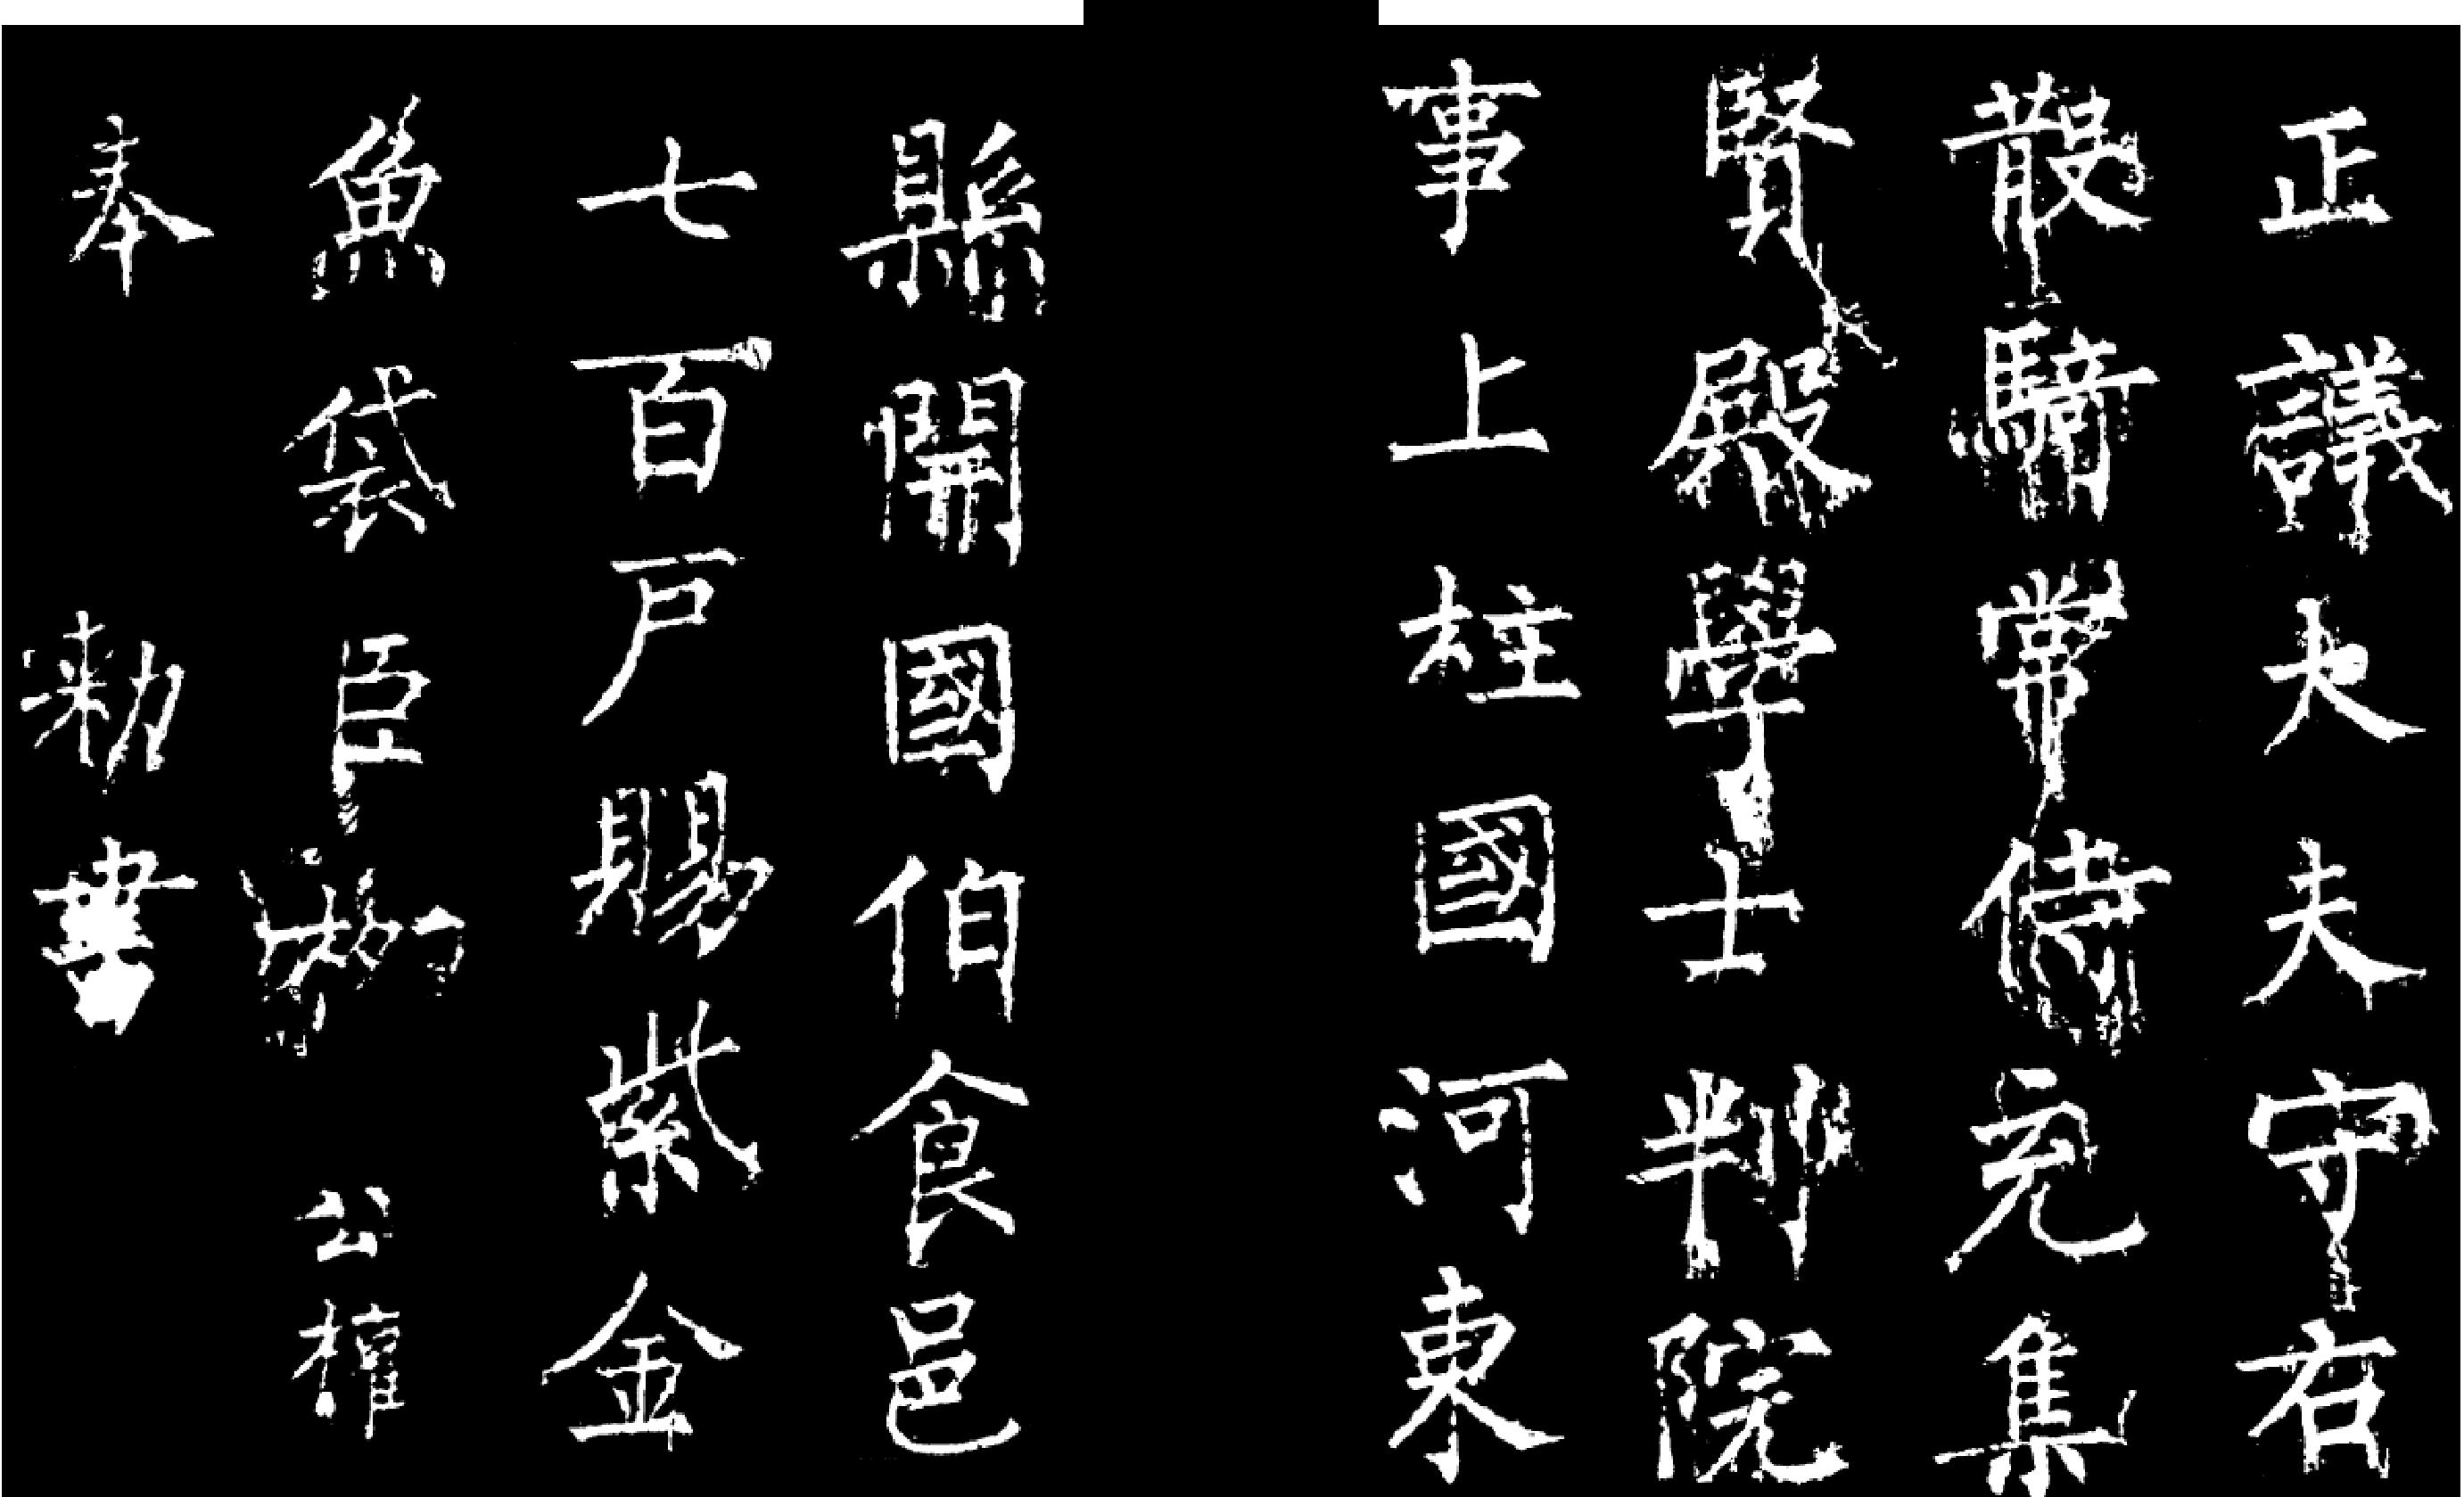 正議大夫守右
散騎常侍充集
賢殿學士判院
事上柱國河東
縣開國伯食邑
七百戶賜紫金
魚袋臣柳公權
奉勑書